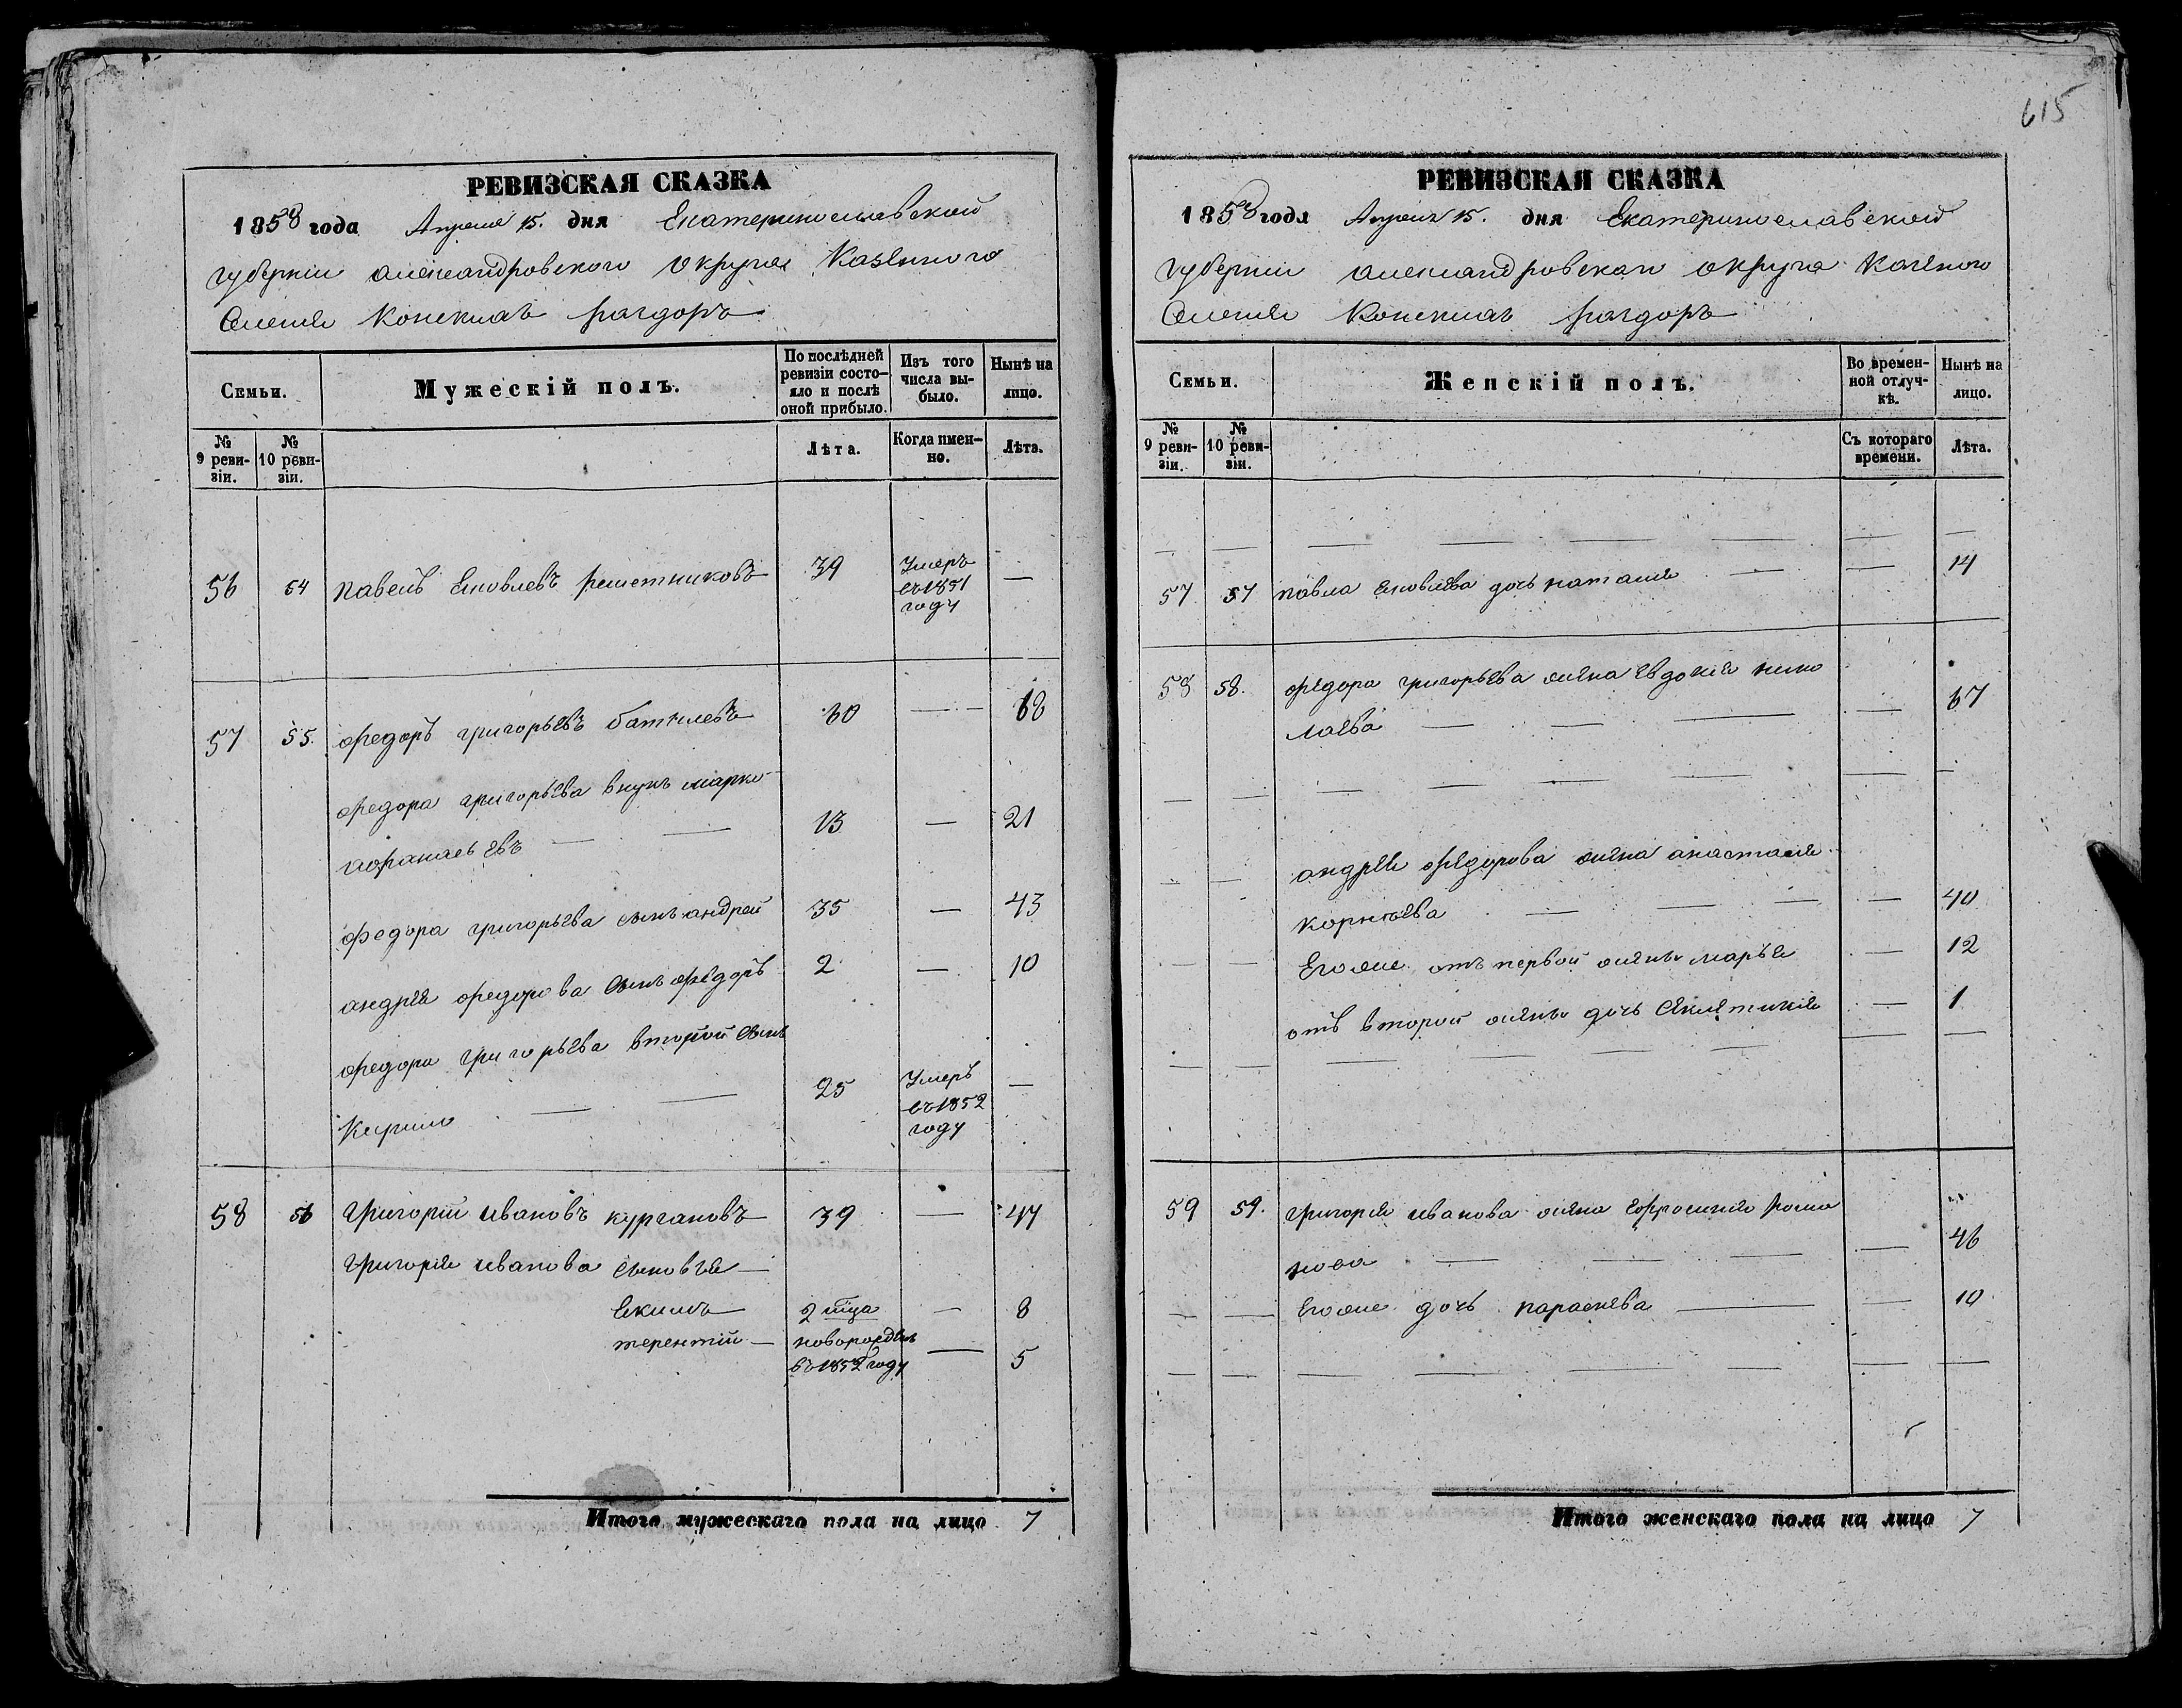 615
РЕВИЗСКАЯ СКАЗКА
1858 года Апреля 15. дня Екатеринославской
губернии александровского округа Казенного
Селения Конских раздоръ
Семьи.
Мужескій полъ.
По послѣдней ревизіи состо-
яло и послѣ
оной прибыло.
Изъ того
числа вы-
было.
Нынѣ на
лицо.
№
9 реви-
зіи.
№
10 реви-
зіи.
Лѣта.
Когда имен-
но.
Лѣта.
56 54 павелъ Яковлевъ решетниковъ 39 Умеръ
въ 1851
году —
57 55. федоръ григорьевъ 60 — — 68
федора григорьева внукъ марко
афанасьевъ — — 13 — 21
федора григорьева сынъ андрей 35 — 43
андрея федорова сынъ федоръ 2 — 10
федора григорьева второй сынъ
Кирило — — 25 Умеръ
въ 1852
году —
58 56 григорій ивановъ кургановъ 39 — 47
григорія иванова сыновья —
Екимъ 2 — 8
терентій — новорожден
въ 1852 году — 5
Итого мужескаго пола на лицо 7
РЕВИЗСКАЯ СКАЗКА
1858 года Апреля 15. дня Екатеринославской
губернии александровскаго округа Казеного
Селения Конскихъ раздоръ
Семьи.
Женскій полъ.
Во времен-
ной отлуч-
кѣ.
Нынѣ на
лицо.
№
9 реви-
зіи.
№
10 реви-
зіи.
Съ котораго
времени.
Лѣта.
57 57 павла Яковлева дочь наталия — — 14
58 58. федора григорьева жена Евдокия нико
лаева — — — — 67
андрея федорова жена анастасия
корнѣева — — — — 40
Его же отъ первой жены марья — 12
отъ второй жены дочь — 1
59 59. григория иванова жена Ефросиния рома
нова — — — — 46
Его же дочь параскева — — 10
Итого женскаго пола на лицо 7